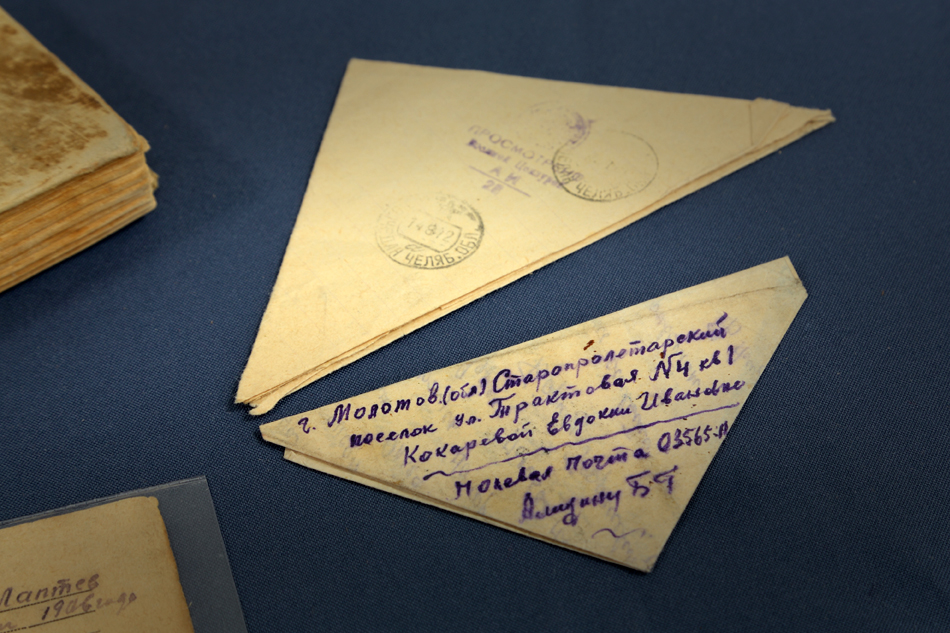 ПРОСМОТРЕНО
Военной Цензурой
28
ЧЕЛЯБ
ЧЕЛЯБ. ОБЛ.
г. Молотов (обл) Старопролетарский
поселок ул. Трактовая №4 кв 1
Кокаревой Евдокии Ивановне
Полевая почта 03565-А
Алядину Б Г
Лаптев
1906 года